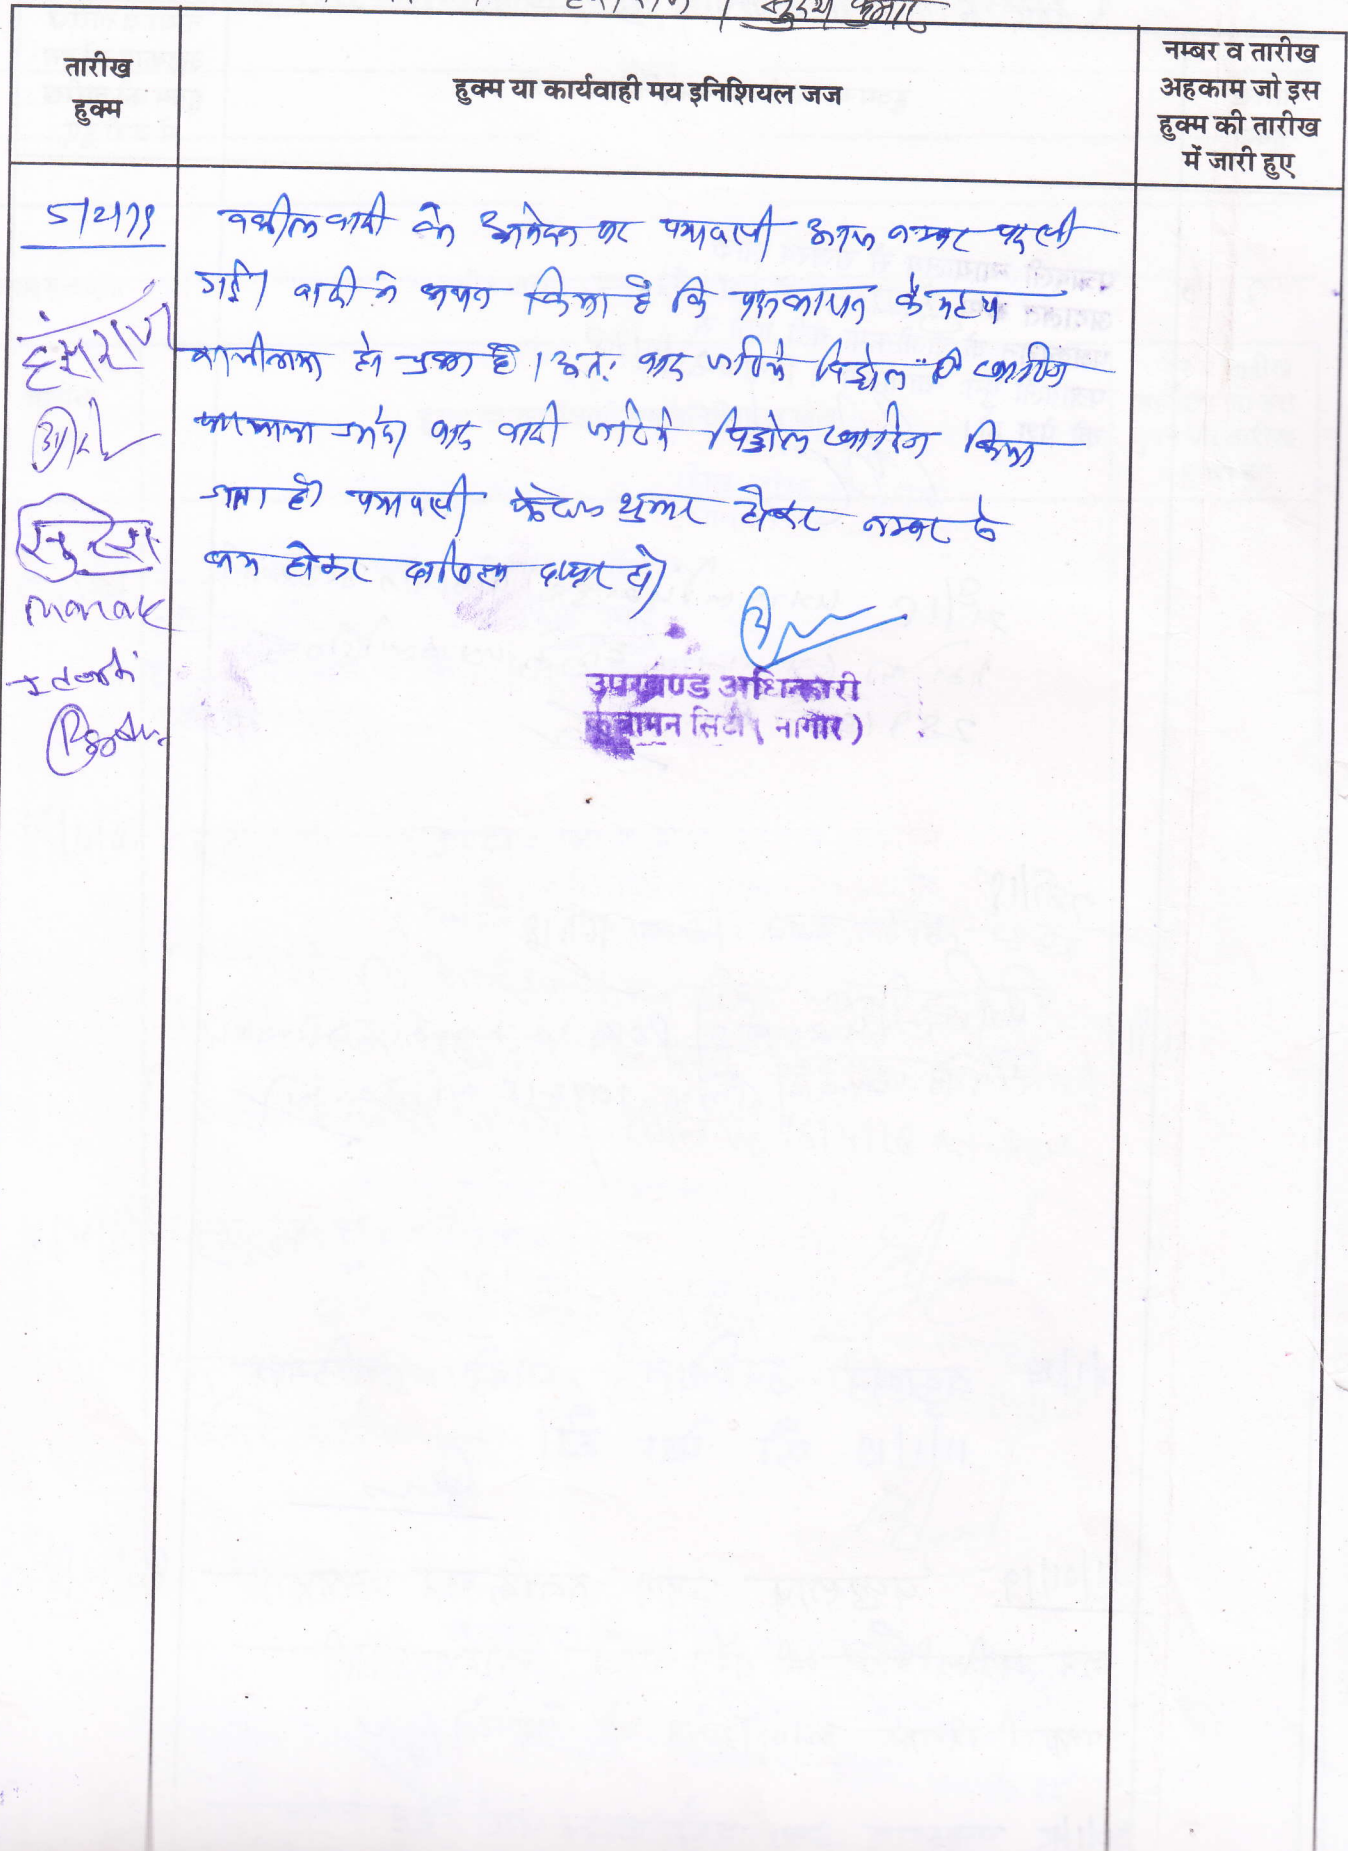 हंसराज / सुरेश कुमार
तारीख
हुक्म
हुक्म या कार्यवाही मय इनिशियल जज
नम्बर व तारीख
अहकाम जो इस
हुक्म की तारीख
में जारी हुए
वकील वादी के आवेदन पर पत्रावली आज नम्बर पर ली
गई। वादी ने कथन किया है कि पक्षकारान के मध्य
राजीनामा हो चुका है। अतः वाद जरिये विड्रोल खारिज
फरमाया जावे। वाद वादी जरिये विड्रोल खारिज किया
जाता है। पत्रावली फैसल शुमार होकर नम्बर से
कम होकर दाखिल दफ्तर हो।
हंसराज
उपखण्ड अधिकारी
कुचामन सिटी ( नागौर )